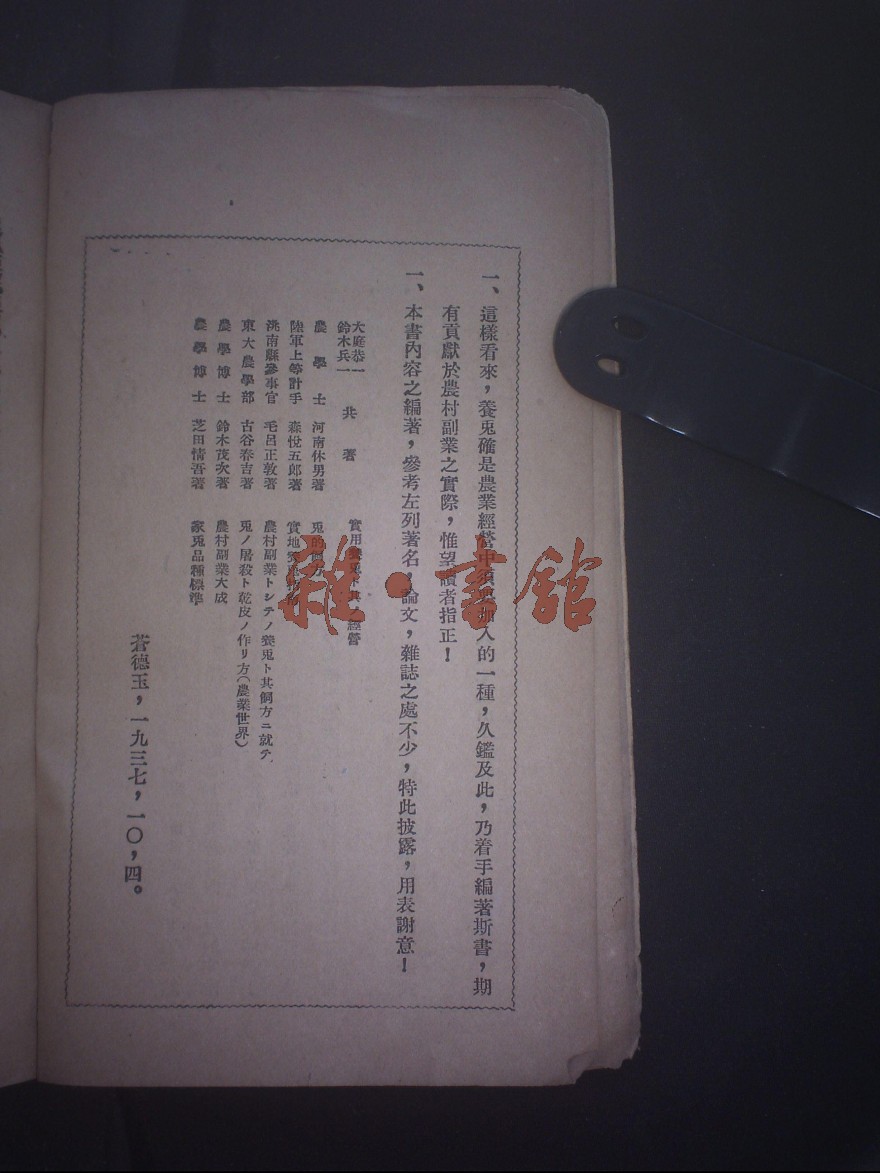 一、這樣看來，養兎確是農業經營中須要加入的一種，久鑑及此，乃着手編著斯書，期
有貢獻於農村副業之實際，惟望讀者指正！
一、本書內容之編著，參考左列著名，論文，雜誌之處不少，特此披露，用表謝意！
大庭恭一
鈴木兵一 共著 實用養兎ト其ノ經營
農學士 河南休男著 兎的飼方
陸軍上等計手 森悅五郎著 實地
洮南縣參事官 毛呂正敦著 農村副業トシテノ養兎ト其飼方ニ就テ
東大農學部 古谷泰吉著 兎ノ屠殺ト乾皮ノ作リ方(農業世界)
農學博士 鈴木茂次著 農村副業大成
農學博士 芝田情吾著 家兎品種標準
苔德玉，一九三七，一〇，四。
雜·書館